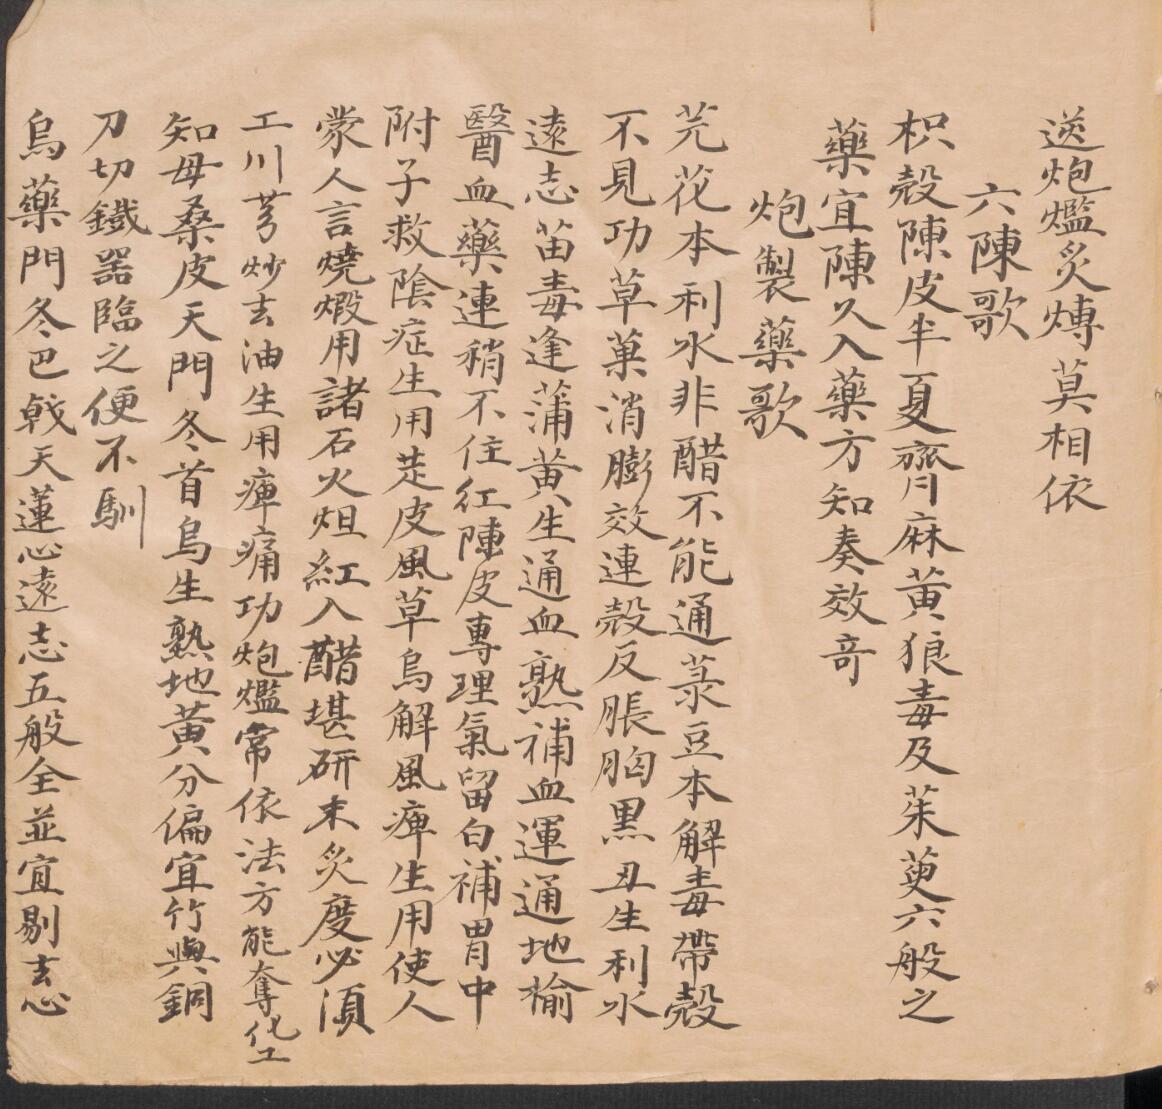 送炮爁炙煿莫相依
六陳歌
枳殼陳皮半夏齊 麻黃狼毒及茱萸六般之
藥宜陳久入藥方知奏效竒
炮製藥歌
芫花本利水非醋不能通菉豆本解毒帶殼
不見功草菓消膨效連殼反脹胸黑丑生利水
遠志苗毒逢蒲黃生通血熟補血運通地榆
醫血藥連稍不住紅陳皮專理氣留白補胃中
附子救陰症生用走皮風草烏解風痺生用使人
蒙人言燒煅用諸石火炟紅入醋堪研末炙度必須
工川芎炒去油生用痺痛功炮爁常依法方能奪化工
知母桑皮天門冬首烏生熟地黃分偏宜竹與銅
刀切鐵器臨之便不馴
烏藥門冬巴戟天蓮心遠志五般全並宜剔去心